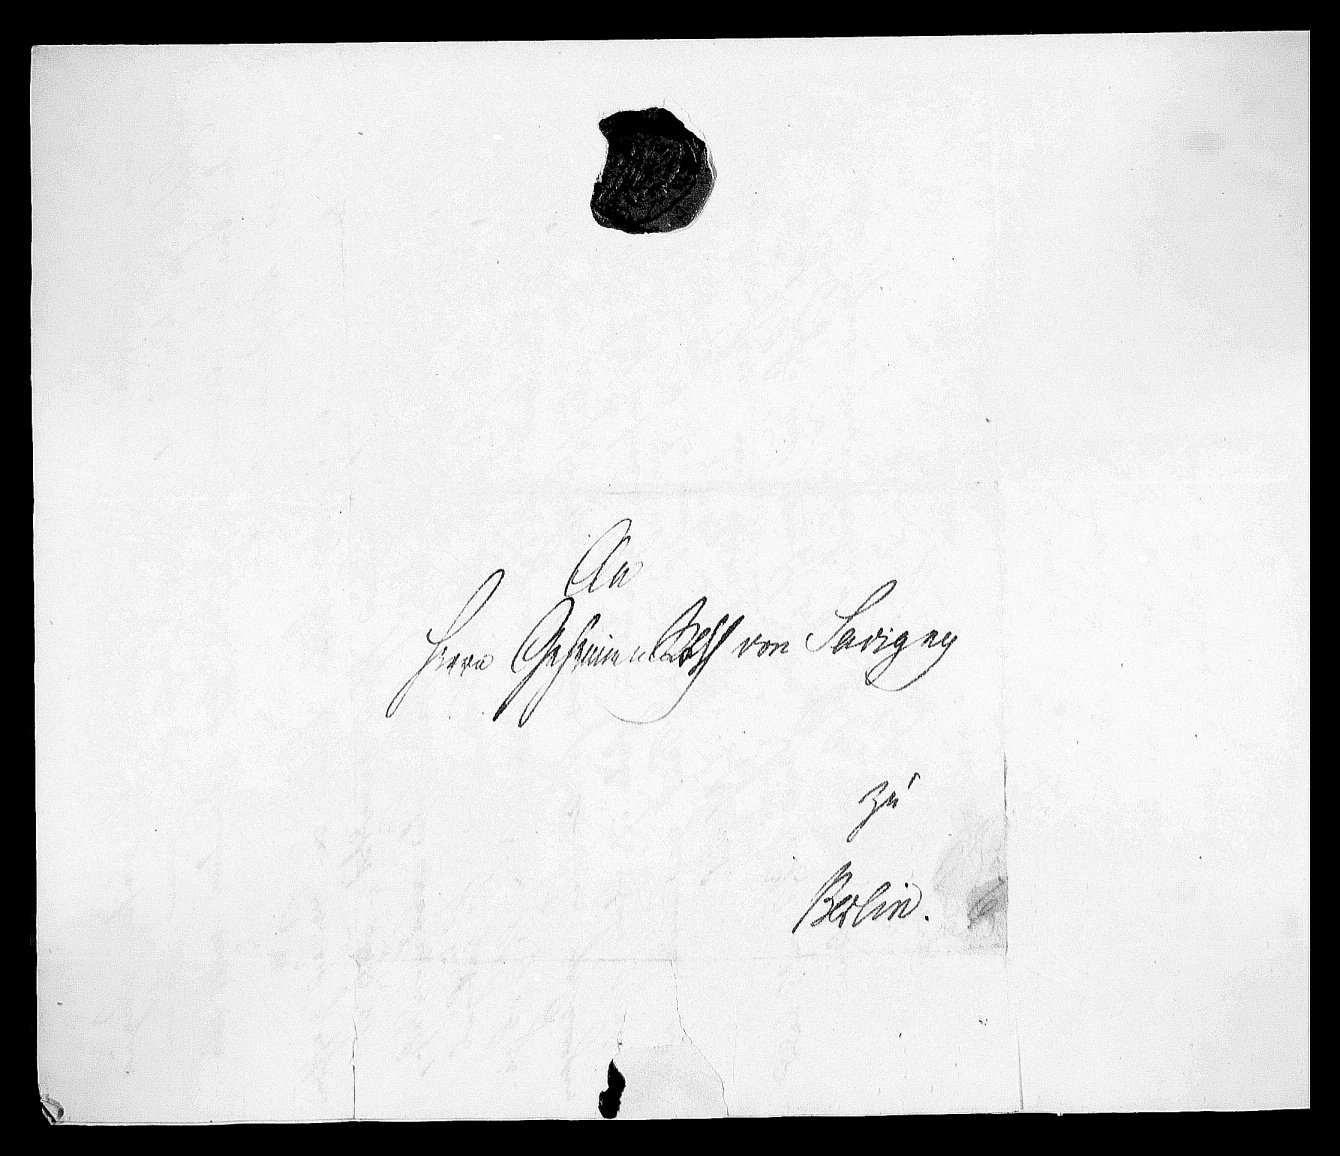 An
Herrn Geheimen Rath von Savigny
zu
Berlin.